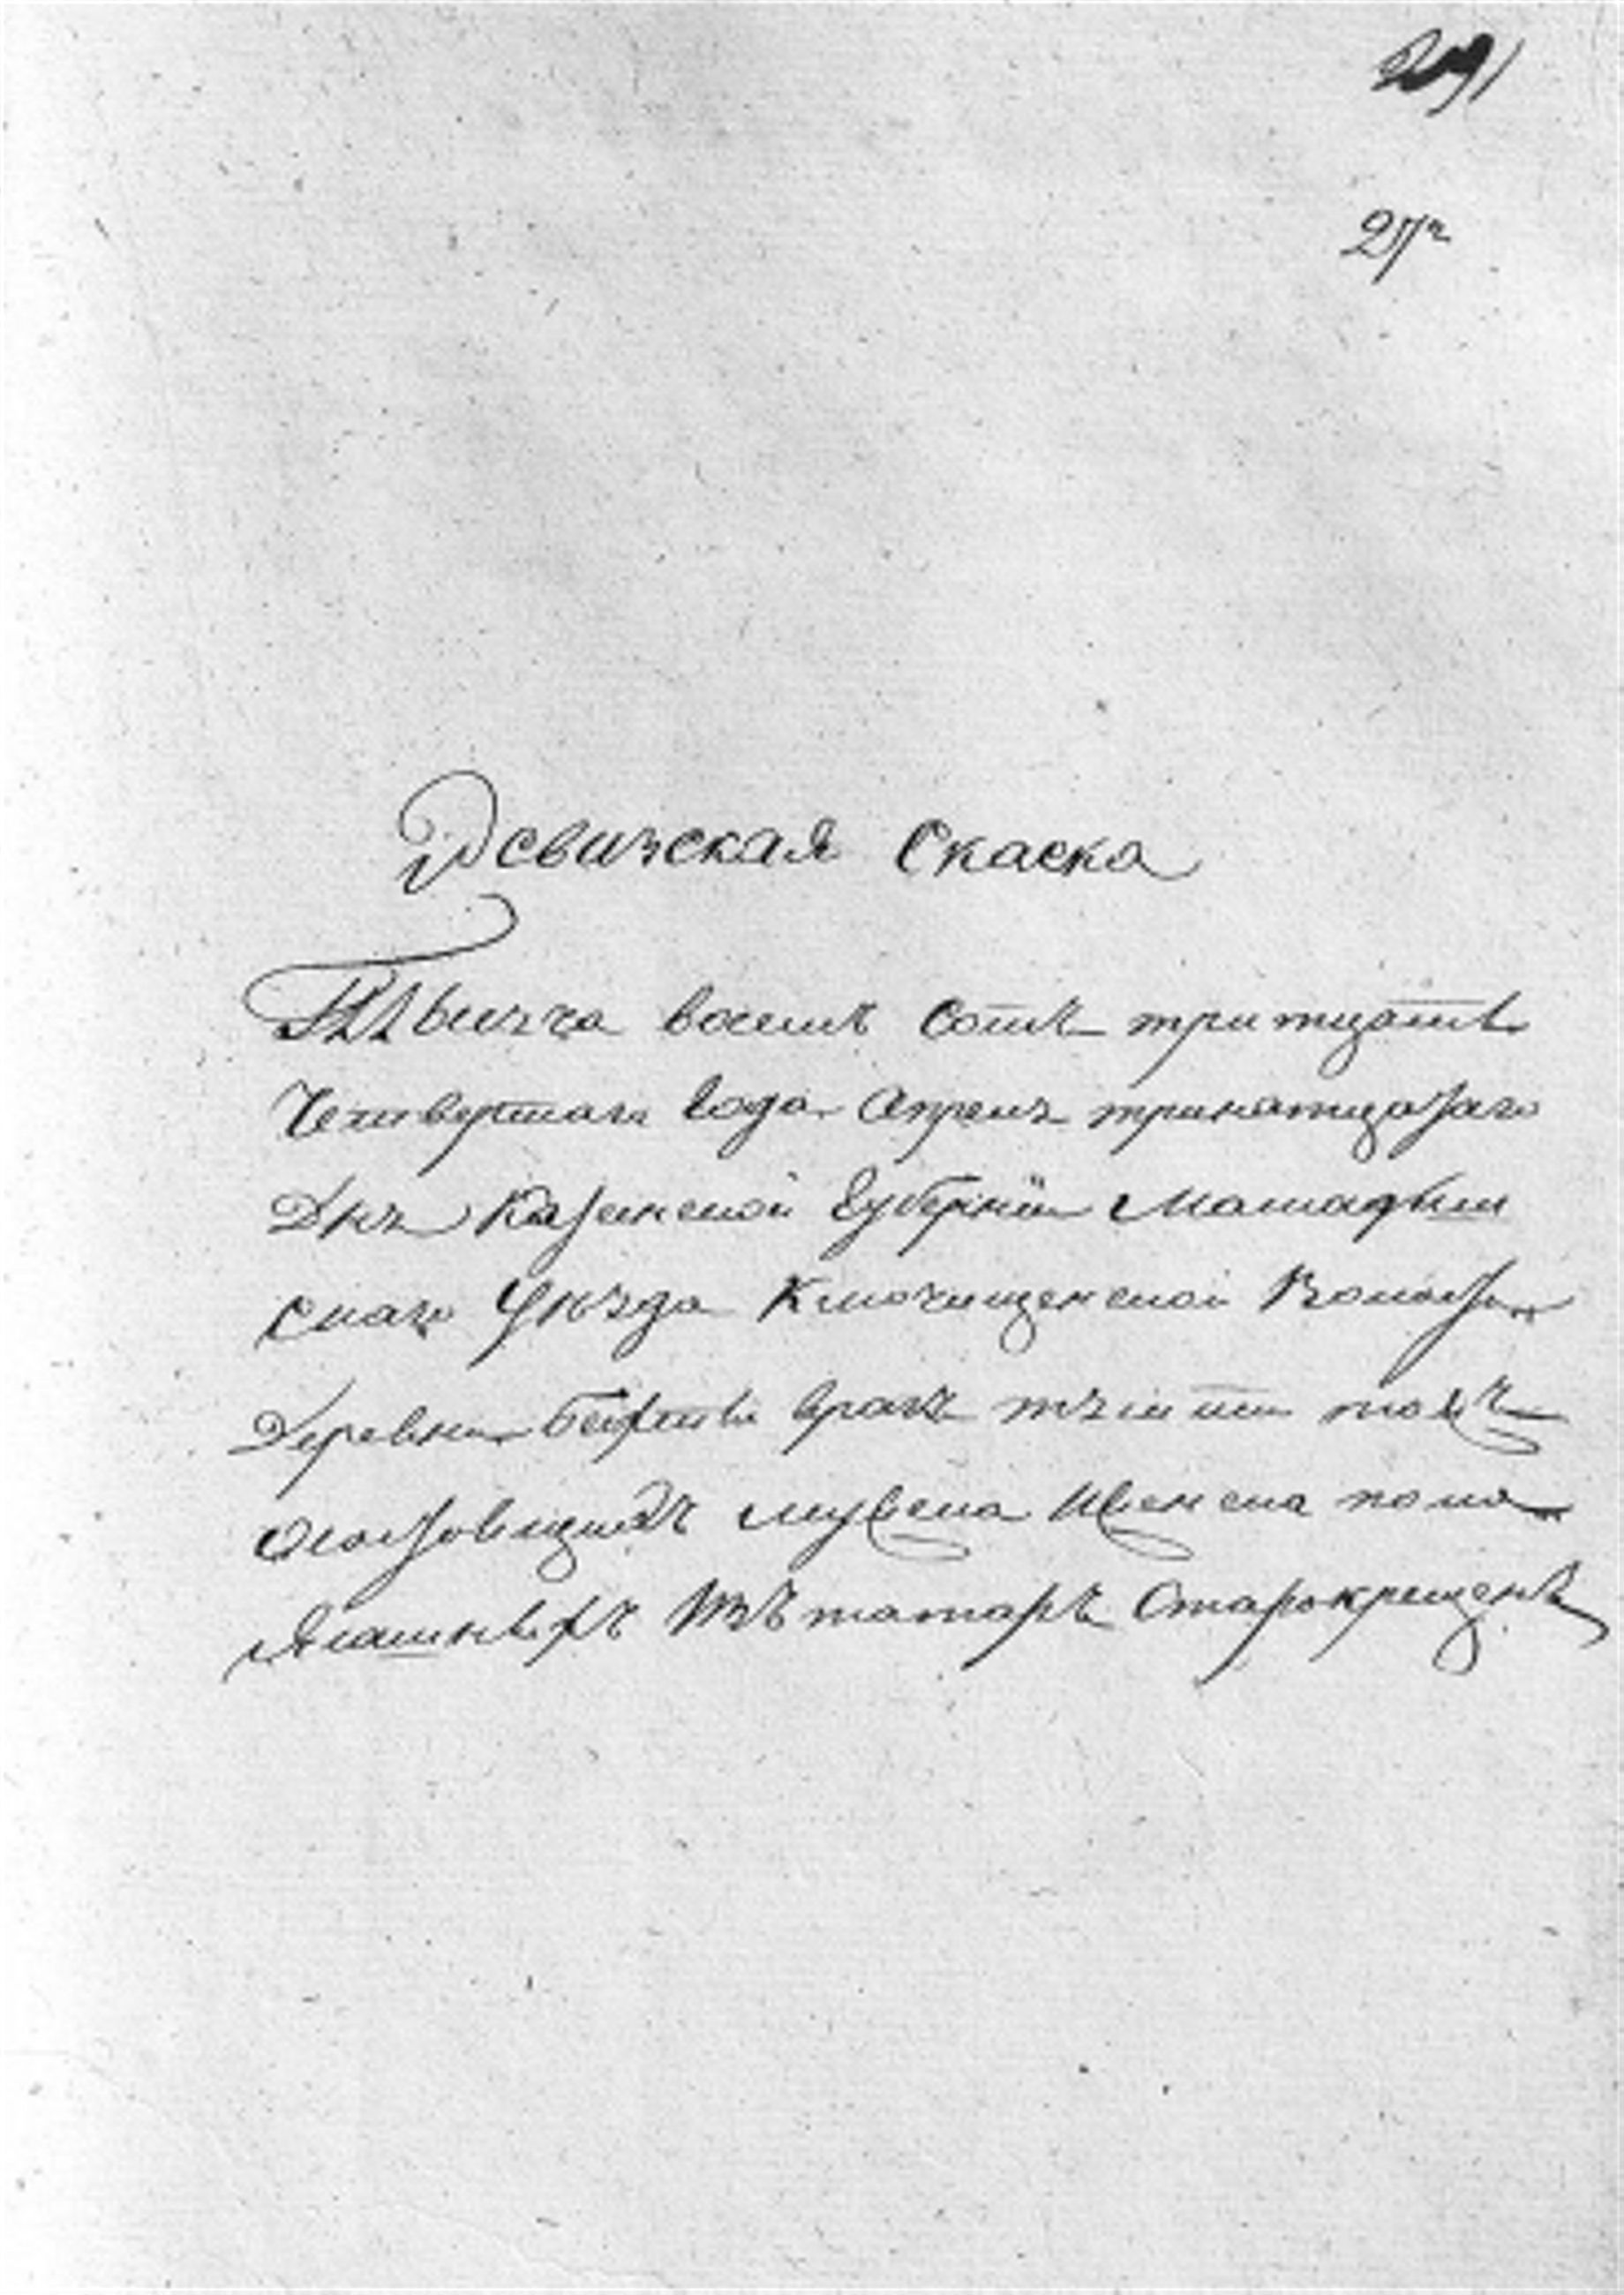 291
Ревизская Скаска
Тысяча восемъ Сотъ тритцать
Четвертаго Года Апреля тринатцатаго
Дня Казанской Губернии Мамадыш
скаго Уезда Ключищенской Волости
Деревни врагъ тожъ
Состоящихъ мужеска Женска пола
Ясашныхъ Изъ татаръ Старокрещенъ